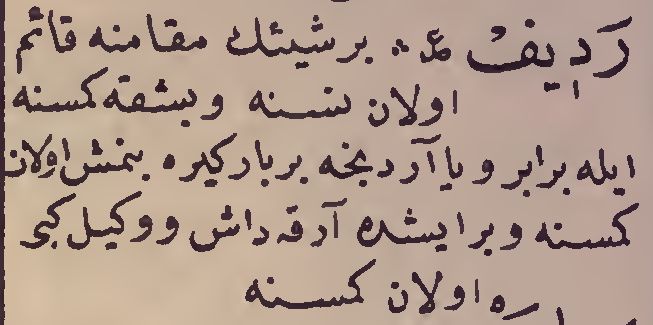 رديف ع بر شيئك مقامنه قائم
اولان نسنه و بشقه كمسنه
ايله برابر و يا آردنجه بر باركيره بنمش اولان
كمسنه و بر ايشده آرقه داش و وكيل كبى
اولان كمسنه